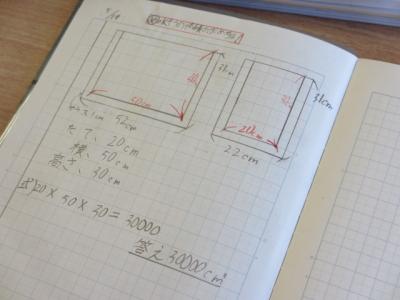 31cm
50cm
52cm
31cm
20cm
22cm
たて、20cm
横、50cm
高さ、30cm
式)20×50×30=30000
答え30000cm³